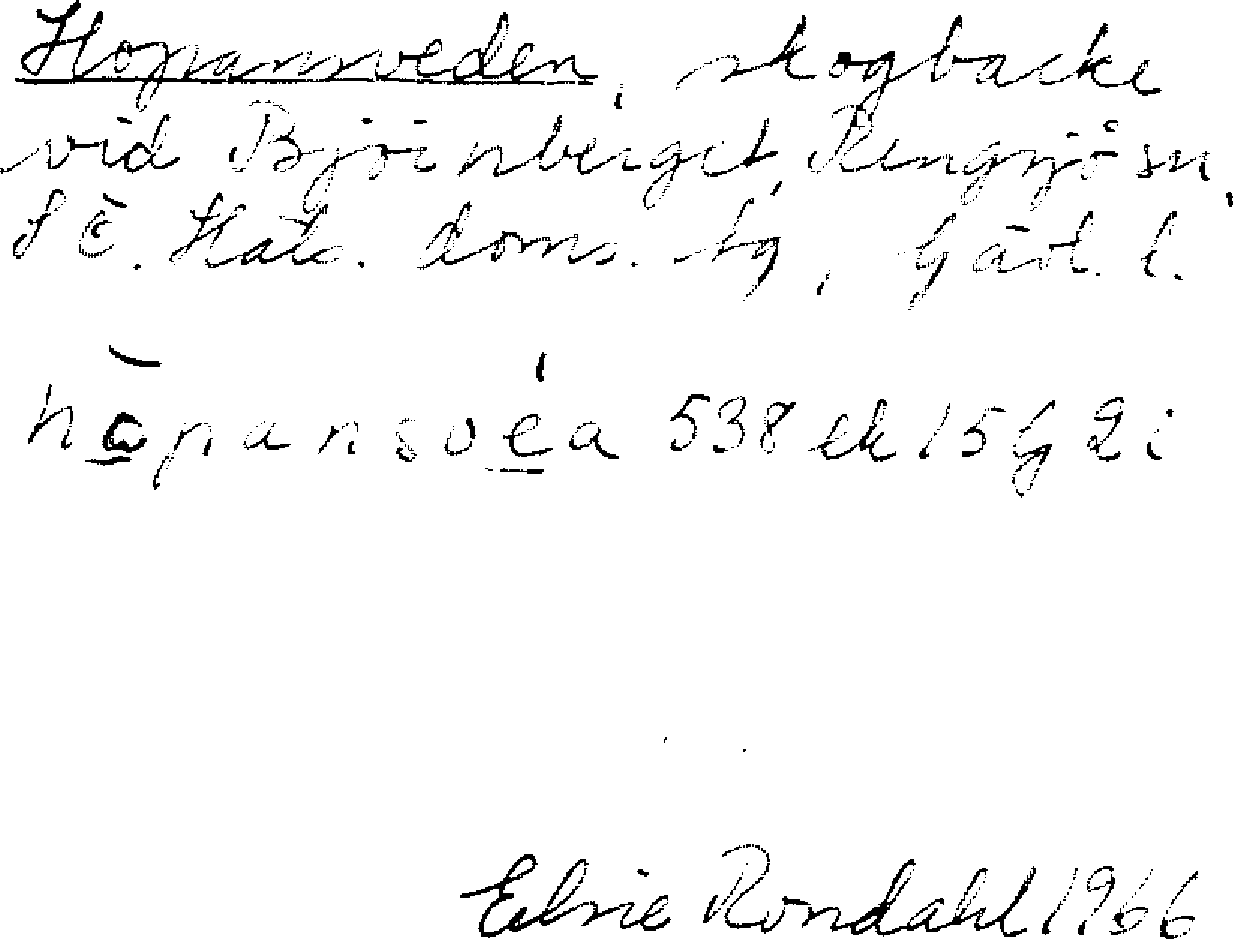 Hopansveden, skogbacke
vid Björnberget, Rengsjö sn,
S Ö. Häls. doms. tg, Gävl. l.
hòpansvéa 538 ek 15G 2i
Elsie Rondahl 1966